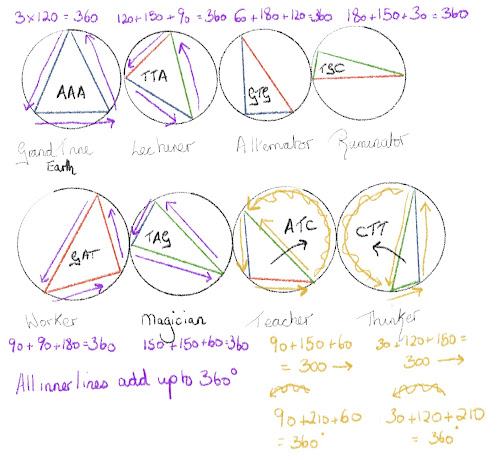 3×120=360 120+150+90=360 60+180+120=360 180+150+30=360
AAA TTA GTG TGC
Grand Trine Lecturer Alternator Ruminator
Earth
GAT TAG ATC CTT
Worker Magician Teacher Thinker
90+90+180=360 150+150+60=360 90+150+60 30+120+150=
= 300 → 300 →
All inner lines add up to 360°
90+210+60 30+120+210
= 360° = 360°